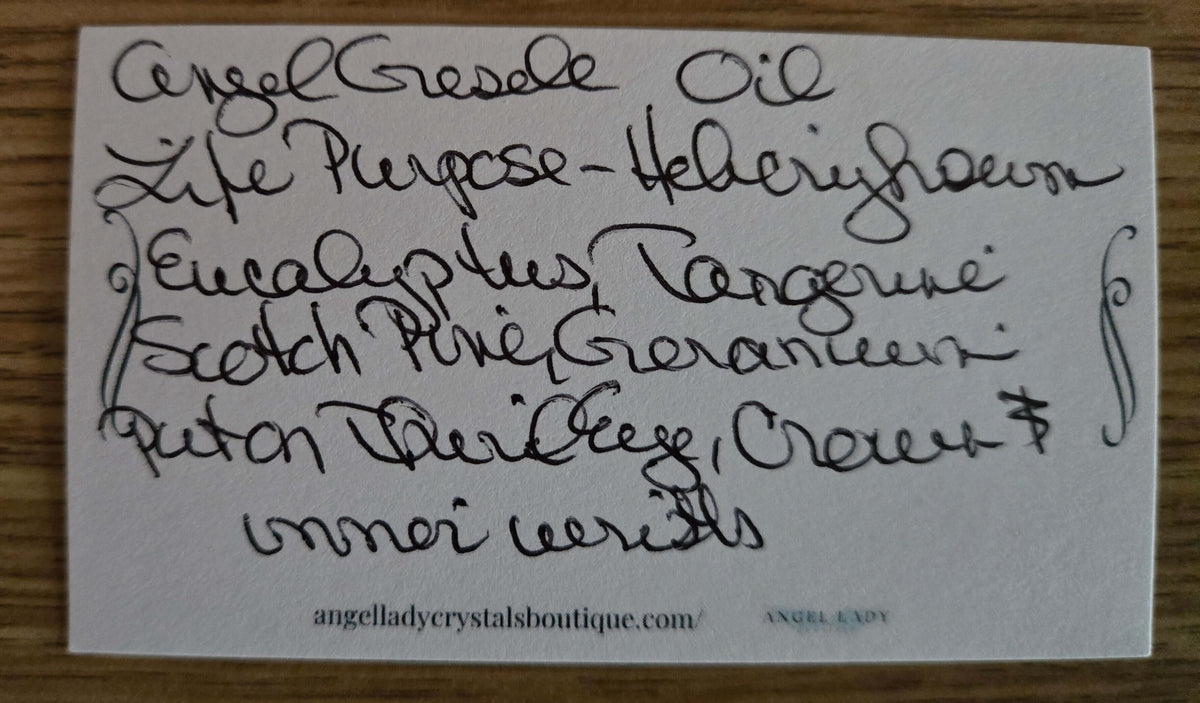 Angel Gresele Oil
Life Purpose - Helicryhoum
Eucalyptus, Tangerine
Scotch Pine, Geranium
put on Third Eye, Crown &
inner wrists
angelladycrystalsboutique.com/ ANGEL LADY